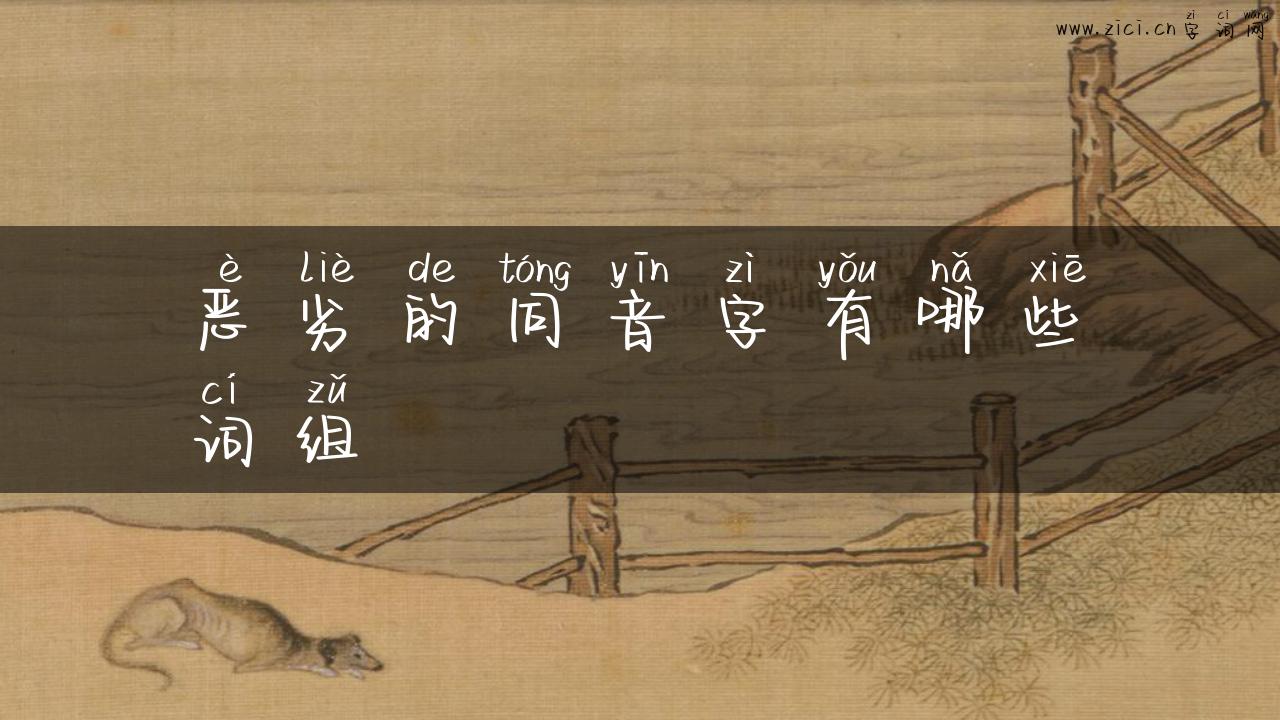 zì cí wǎng
www.zici.cn字词网
è liè de tóng yīn zì yǒu nǎ xiē
恶劣的同音字有哪些
cí zǔ
词组